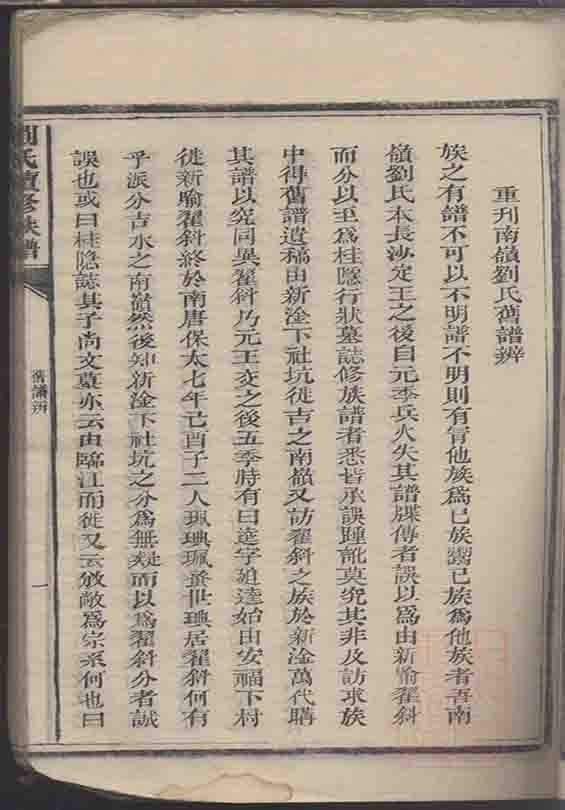 重刊南嶺劉氏舊譜辨
族之有譜不可以不明譜不明則有冐他族爲已族鬻已族爲他族者吾南
嶺劉氏本長沙定王之後自元季兵火失其譜牒傳者誤以爲由新喻翟斜
而分以至爲桂隱行狀墓誌修族譜者悉皆承誤踵訛莫究其非及訪求族
中得舊譜遺稿由新淦下社坑徙吉之南嶺又訪翟斜之族於新淦萬代購
其譜以究同異翟斜乃元王交之後五季時有曰遠字道達始由安福下村
徙新喻翟斜終於南唐保太七年己酉子二人珮琠珮蚤世琠居翟斜何有
乎派分吉水之南嶺然後知新淦下社坑之分爲無疑而以爲翟斜分者誠
誤也或曰桂隐誌其子尚文墓亦云由臨江而徙又云攽敞爲宗系何也曰
氏續修族譜
舊譜辨
一